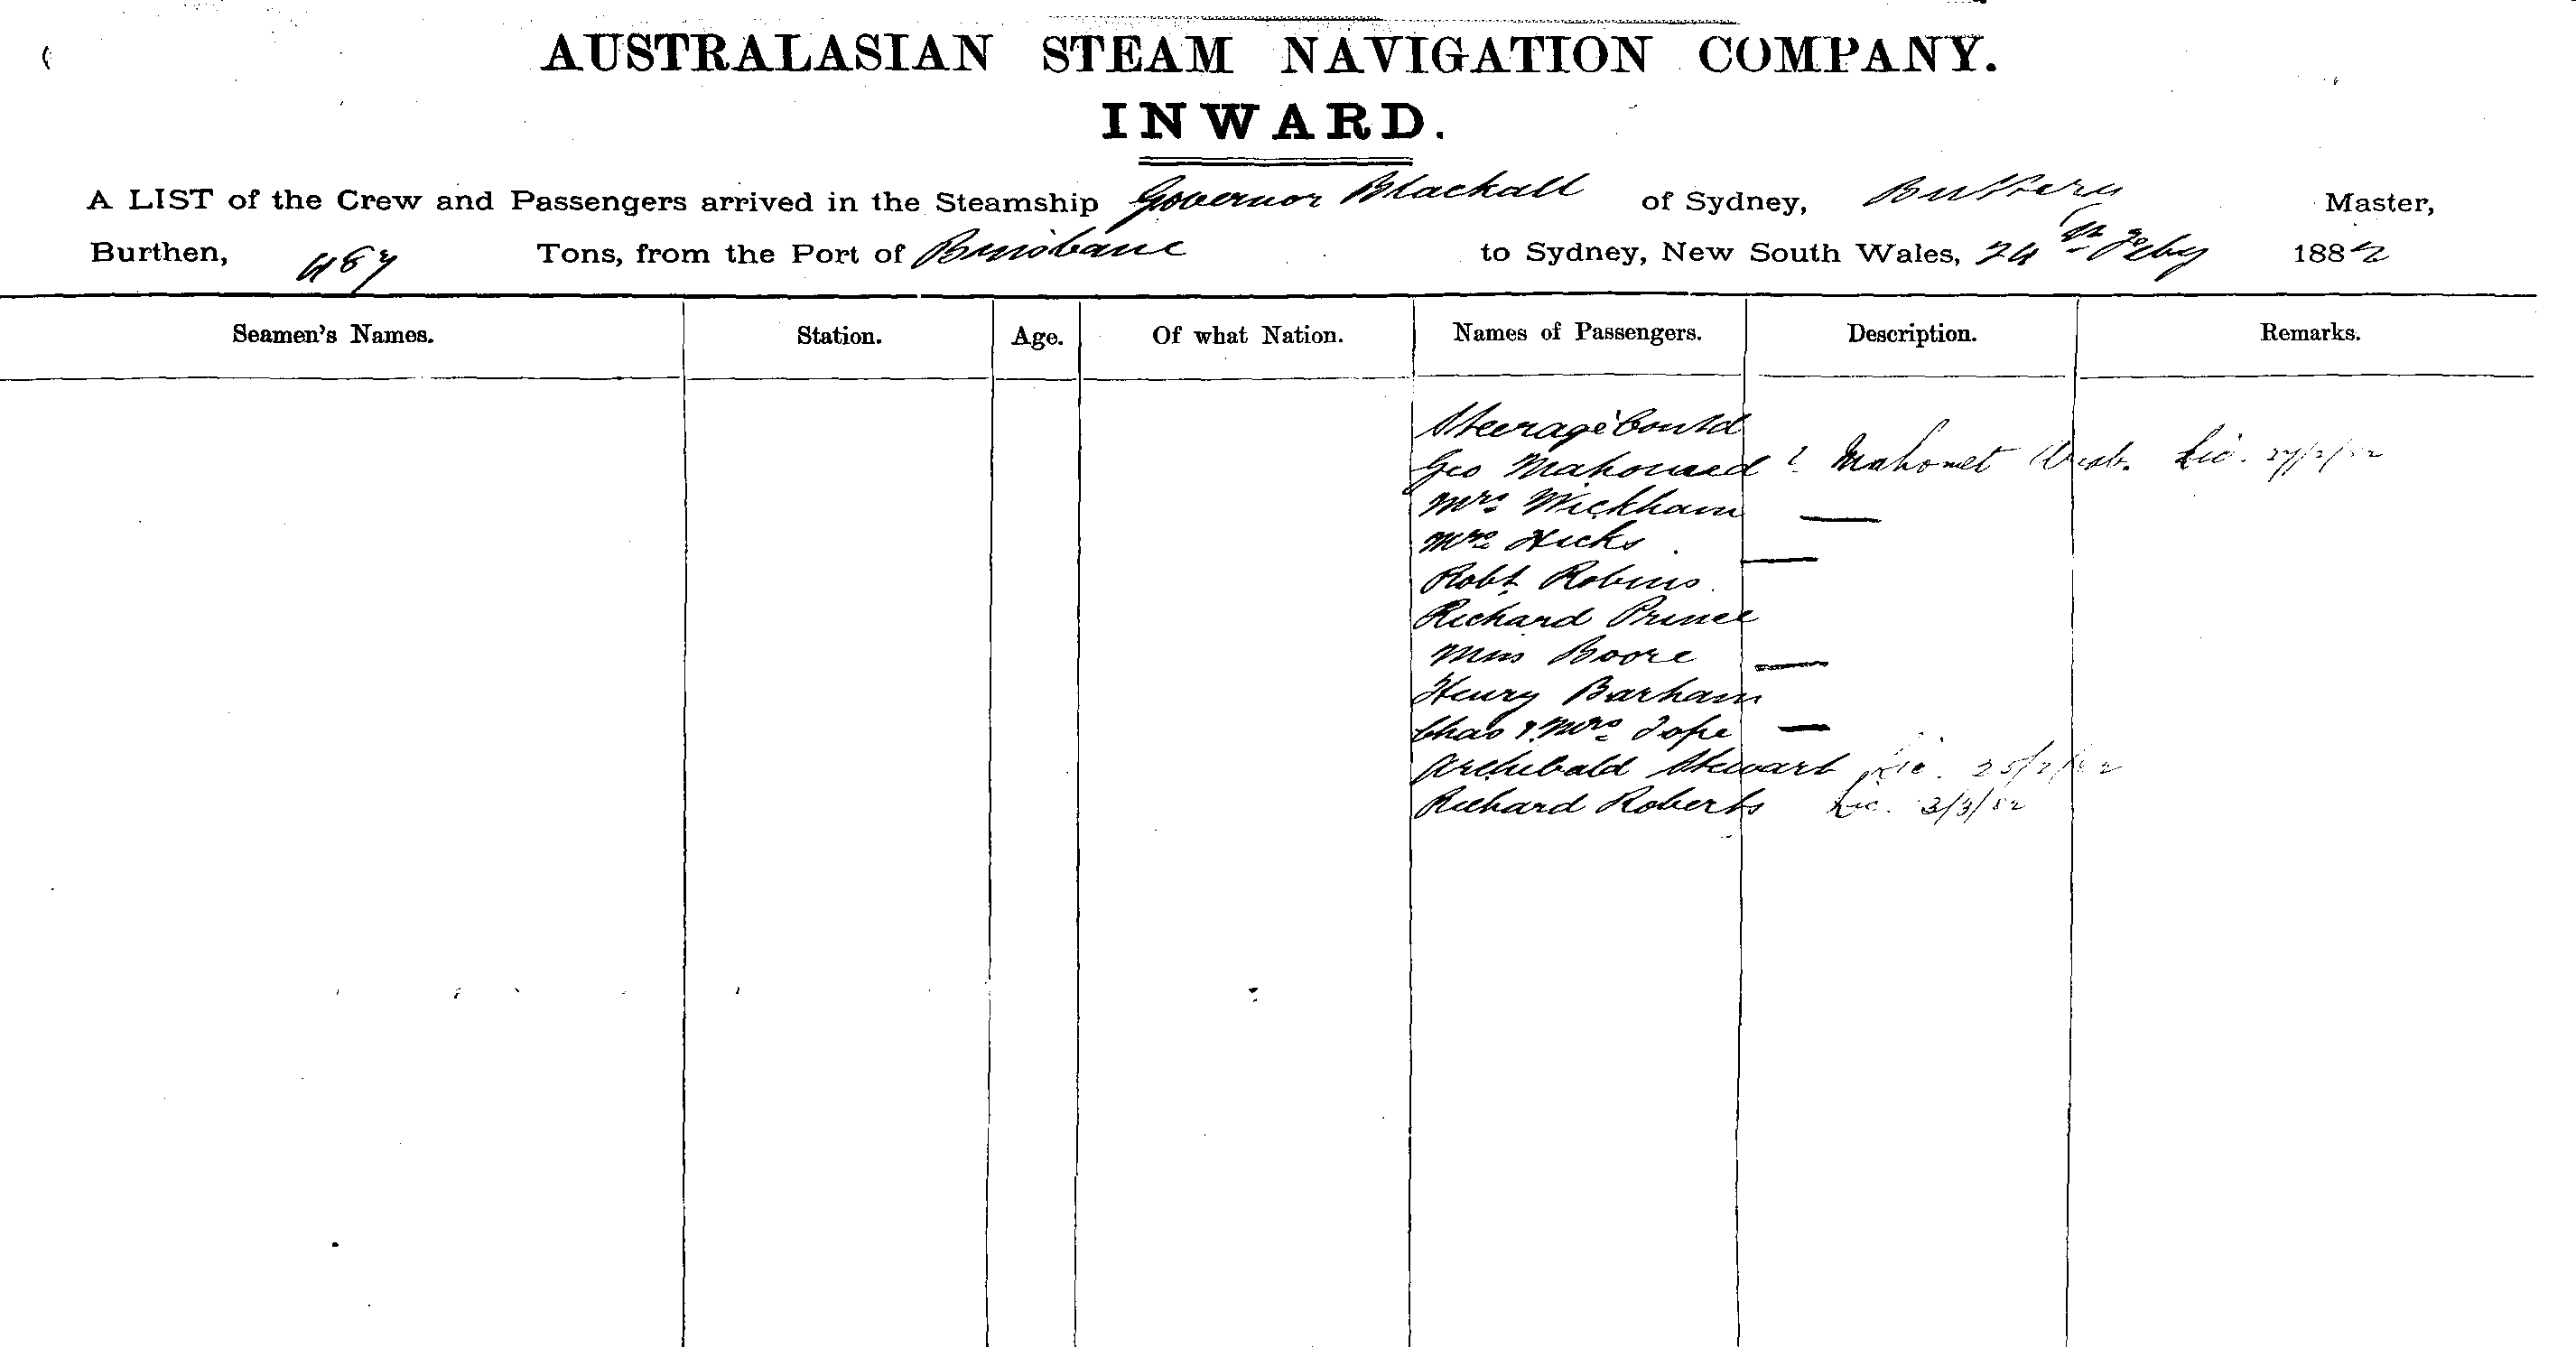 AUSTRALASIAN STEAM NAVIGATION COMPANY.
INWARD.
A LIST of the Crew and Passengers arrived in the Steamship Governor Blackall of Sydney, Buttery Master,
Burthen, 487 Tons, from the Port of Brisbane to Sydney, New South Wales, 24th Feby 1882
Seamen's Names. Station. Age. Of what Nation. Names of Passengers. Description. Remarks.
Steerage Contd
Geo Mahomed ? Mahomet Arab. Lic. 27/2/82
Mrs Wickham —
Mrs Hicks —
Robt Robins
Richard Prince
Miss Boore —
Henry Barham
Chas & Mrs Tope —
Archibald Stewart Lic. 25/2/82
Richard Roberts Lic. 3/3/82